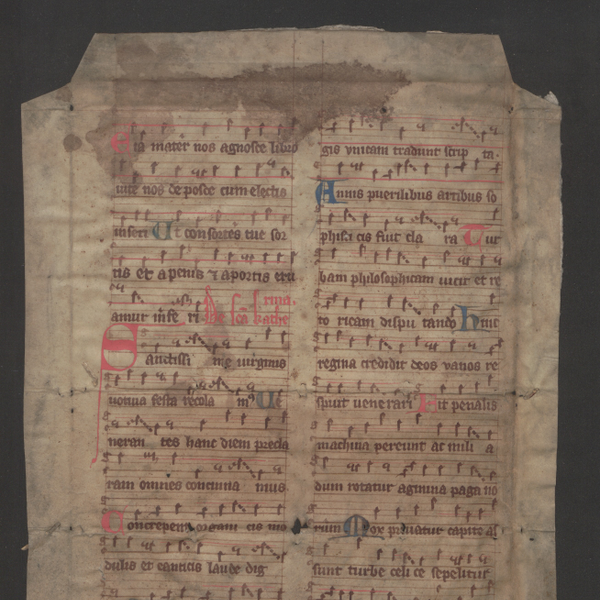 ta mater nos agnosce libro
uite nos deposce cum electis
inseri Ut consortes tue sor
tis et a penis et a portis eru
amur inferi De sca kathe
rina
Sanctissi me uirginis
uotiua festa recola m9 Ue
neran tes hanc diem precla
ram omnes concinna mus
Concrepent organi cis mo
dulis et canticis laude dig
gis unicam tradunt scrip ta
Annis puerilibus artibus so
phisticis fiut cla ra Tur
bam philosophicam uicit et re
to ricam dispu tando hinc
regina credidit deos uanos re
spuit uenerari Fit penalis
machina pereunt ac mili a
dum rotatur agmina paga no
rum Mox priuatur capite as
sunt turbe celi ce sepelitur